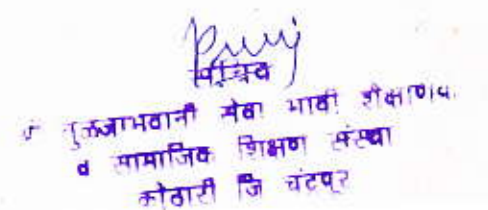 सचिव
तुळजाभवानी सेवा भावी शैक्षणिक
व सामाजिक शिक्षण संस्था
कोठारी जि चंद्रपूर